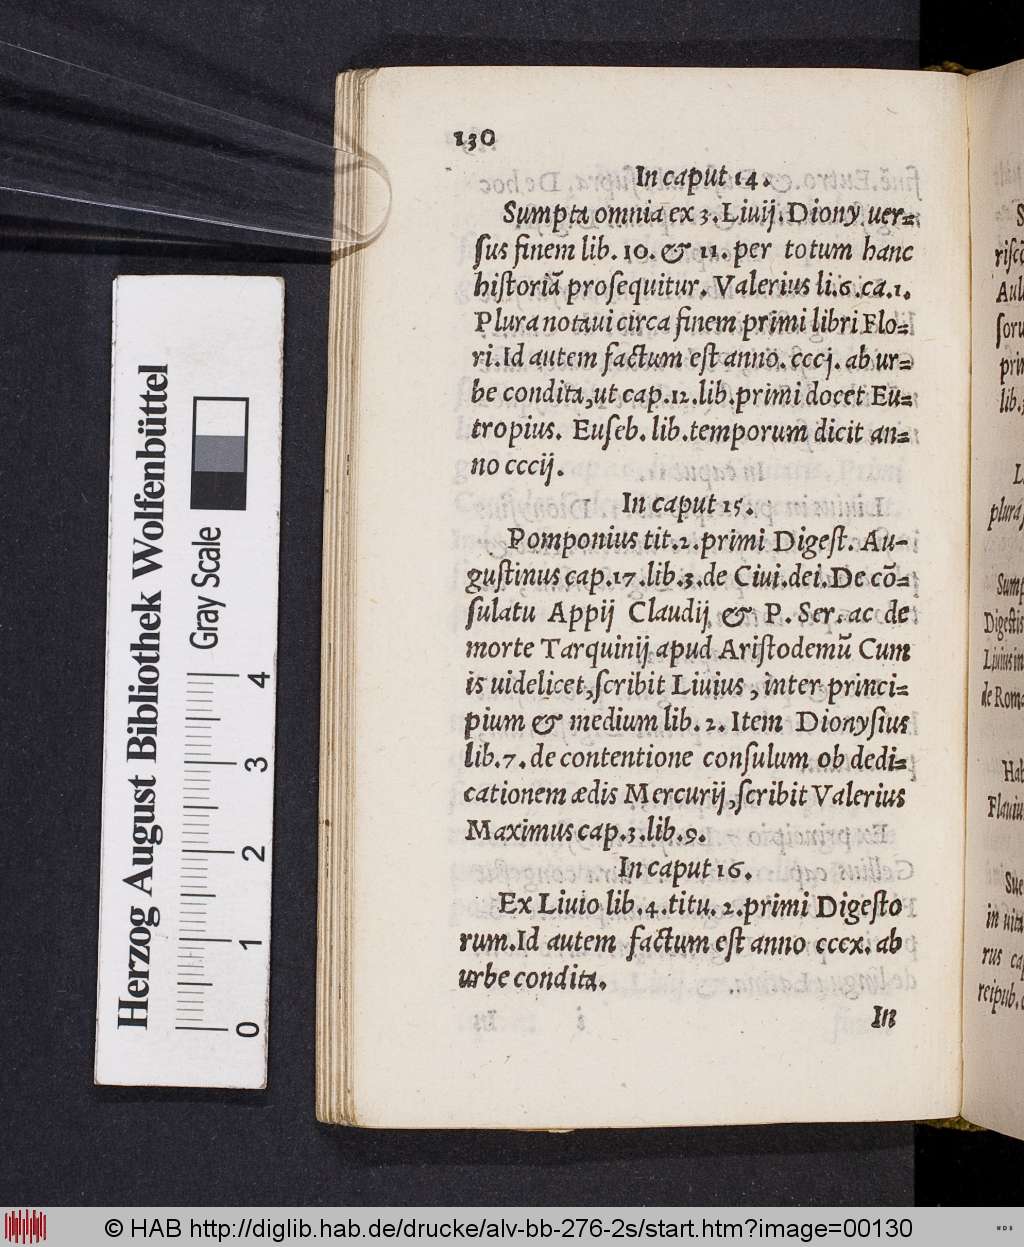 130
In caput 14.
Sumpta omnia ex 3. Liuij. Diony. uer=
ſus finem lib. 10. & 11. per totum hanc
hiſtoriā proſequitur. Valerius li.6.ca.1.
Plura notaui circa finem primi libri Flo=
ri. Id autem factum eſt anno. cccj. ab ur=
be condita, ut cap.12.lib.primi docet Eu=
tropius. Euſeb. lib.temporum dicit an=
no cccij.
In caput 15.
Pomponius tit.2.primi Digeſt. Au-
guſtinus cap.17.lib.3.de Ciui.dei. De cō=
ſulatu Appij Claudij & P. Ser. ac de
morte Tarquinij apud Ariſtodemū Cum
is uidelicet, ſcribit Liuius, inter princi=
pium & medium lib. 2. Item Dionyſius
lib.7. de contentione conſulum ob dedi=
cationem ædis Mercurij, ſcribit Valerius
Maximus cap.3.lib.9.
In caput 16.
Ex Liuio lib.4.titu. 2.primi Digeſto
rum. Id autem factum eſt anno cccx. ab
urbe condita.
In
Herzog August Bibliothek Wolfenbüttel
Gray Scale
0 1 2 3 4
© HAB http://diglib.hab.de/drucke/alv-bb-276-2s/start.htm?image=00130